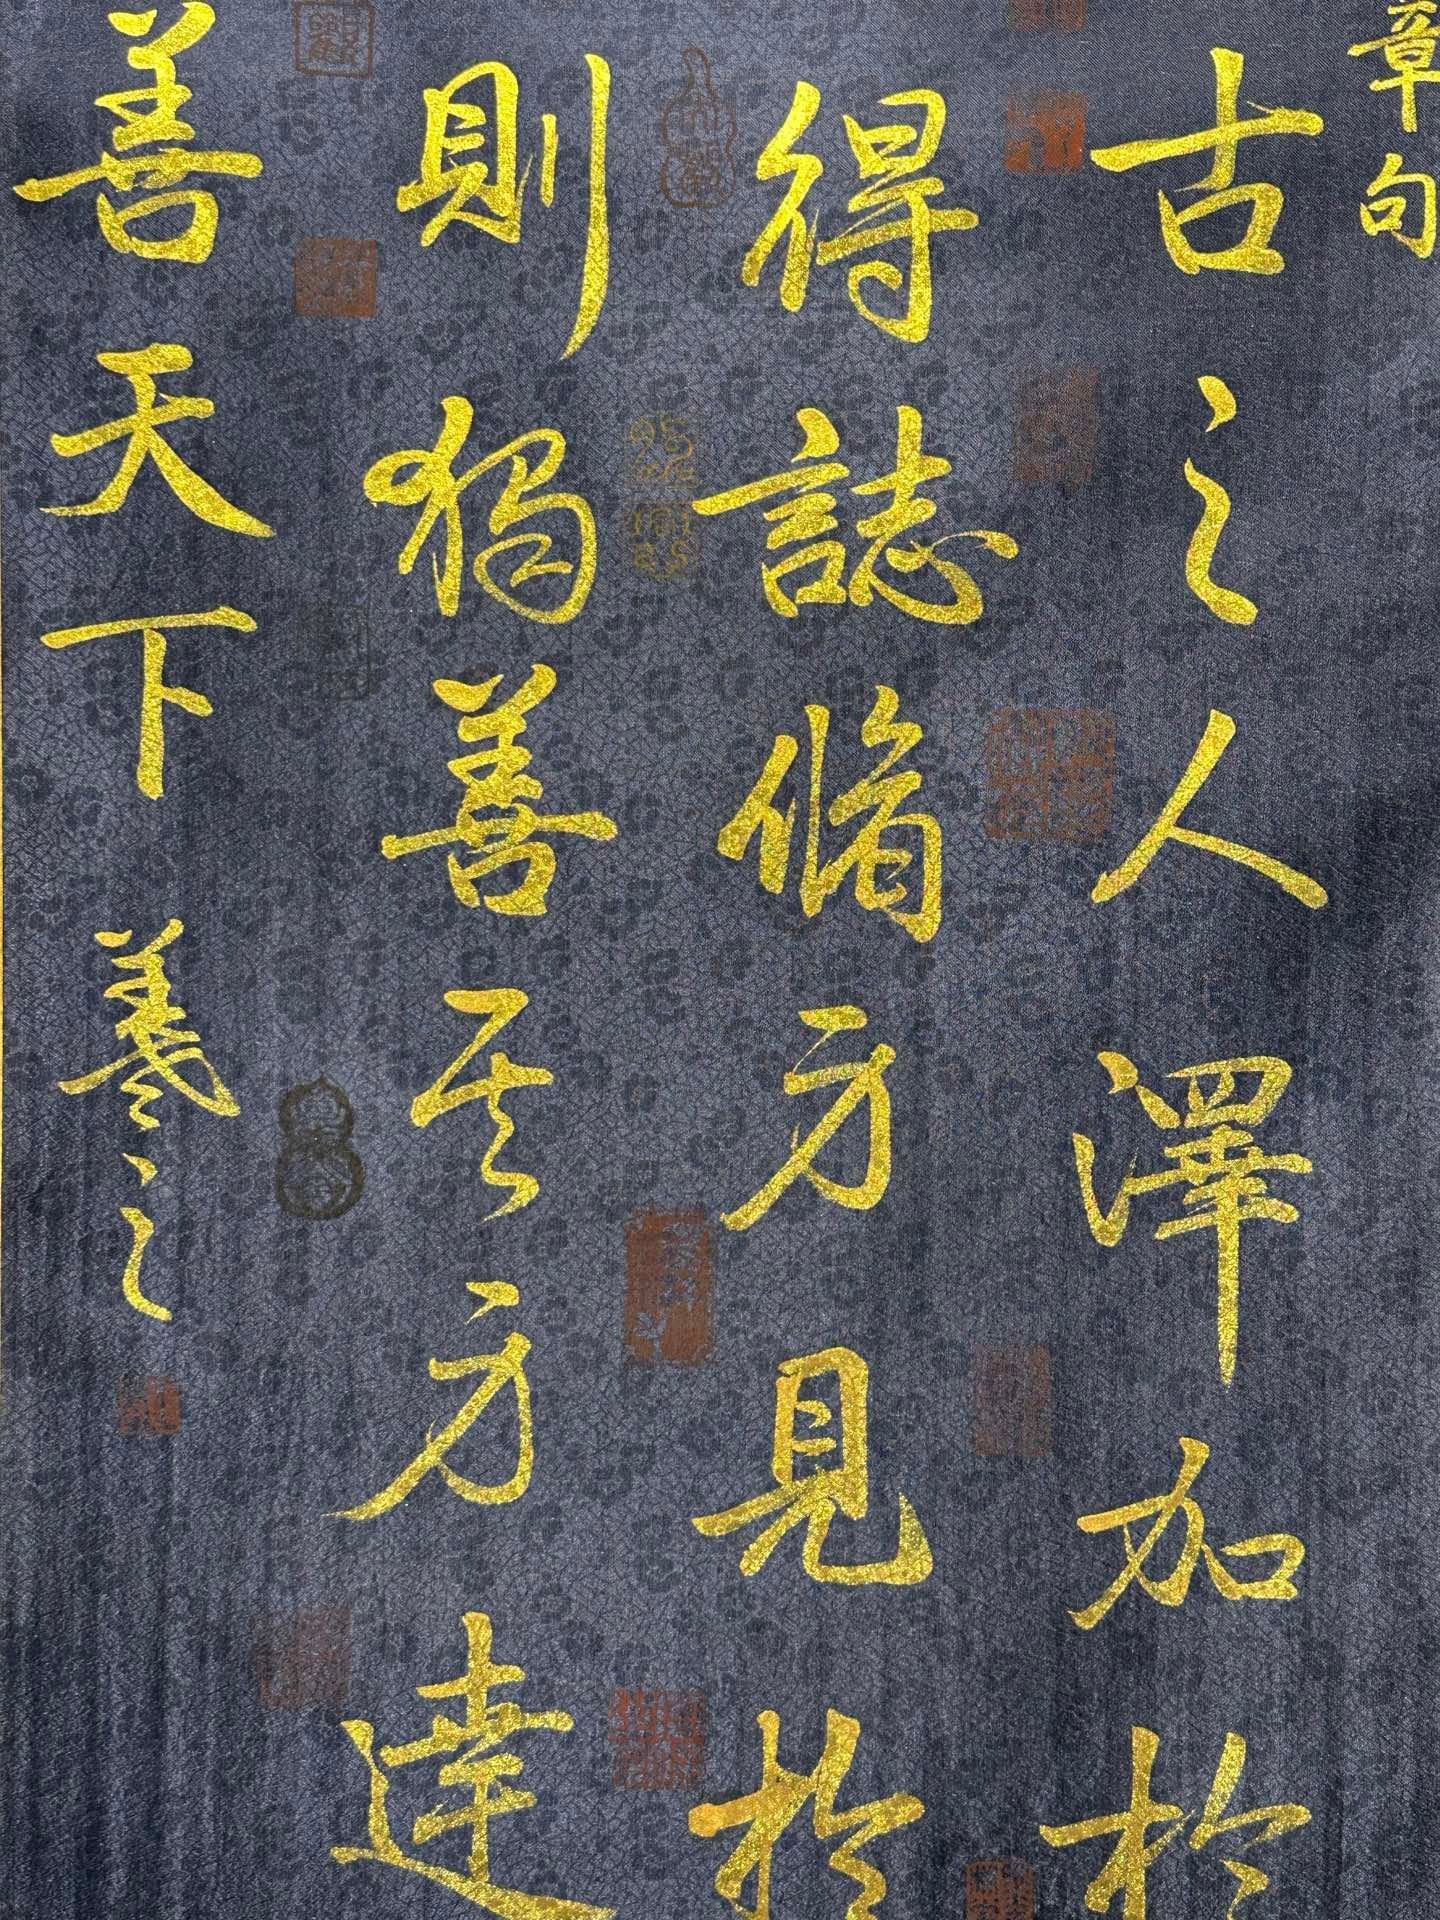 章句
古之人澤加於
得誌脩方見於
則獨善其方達
善天下羲之